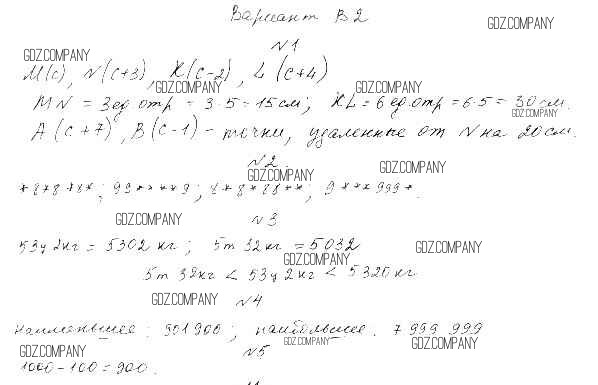 Вариант В2
GDZ.COMPANY
№1
GDZ.COMPANY
М(с), N(с+3), К(с-2), L(с+4)
GDZ.COMPANY GDZ.COMPANY
MN = 3 ед отр = 3·5 = 15 см; KL = 6 ед. отр = 6·5 = 30 см.
GDZ.COMPANY
А(с+7), В(с-1) - точки, удаленные от N на 20 см.
№2.
GDZ.COMPANY GDZ.COMPANY
*8*8*8*; 99****9; *8*88**; 9***999*.
GDZ.COMPANY №3
53ц 2кг = 5302 кг; 5т 32кг = 5032
GDZ.COMPANY
GDZ.COMPANY
5т 32кг < 53ц 2кг < 5320 кг
GDZ.COMPANY №4
наименьшее: 901900; наибольшее: 7 999 999
GDZ.COMPANY №5 GDZ.COMPANY GDZ.COMPANY
1000 - 100 = 900.